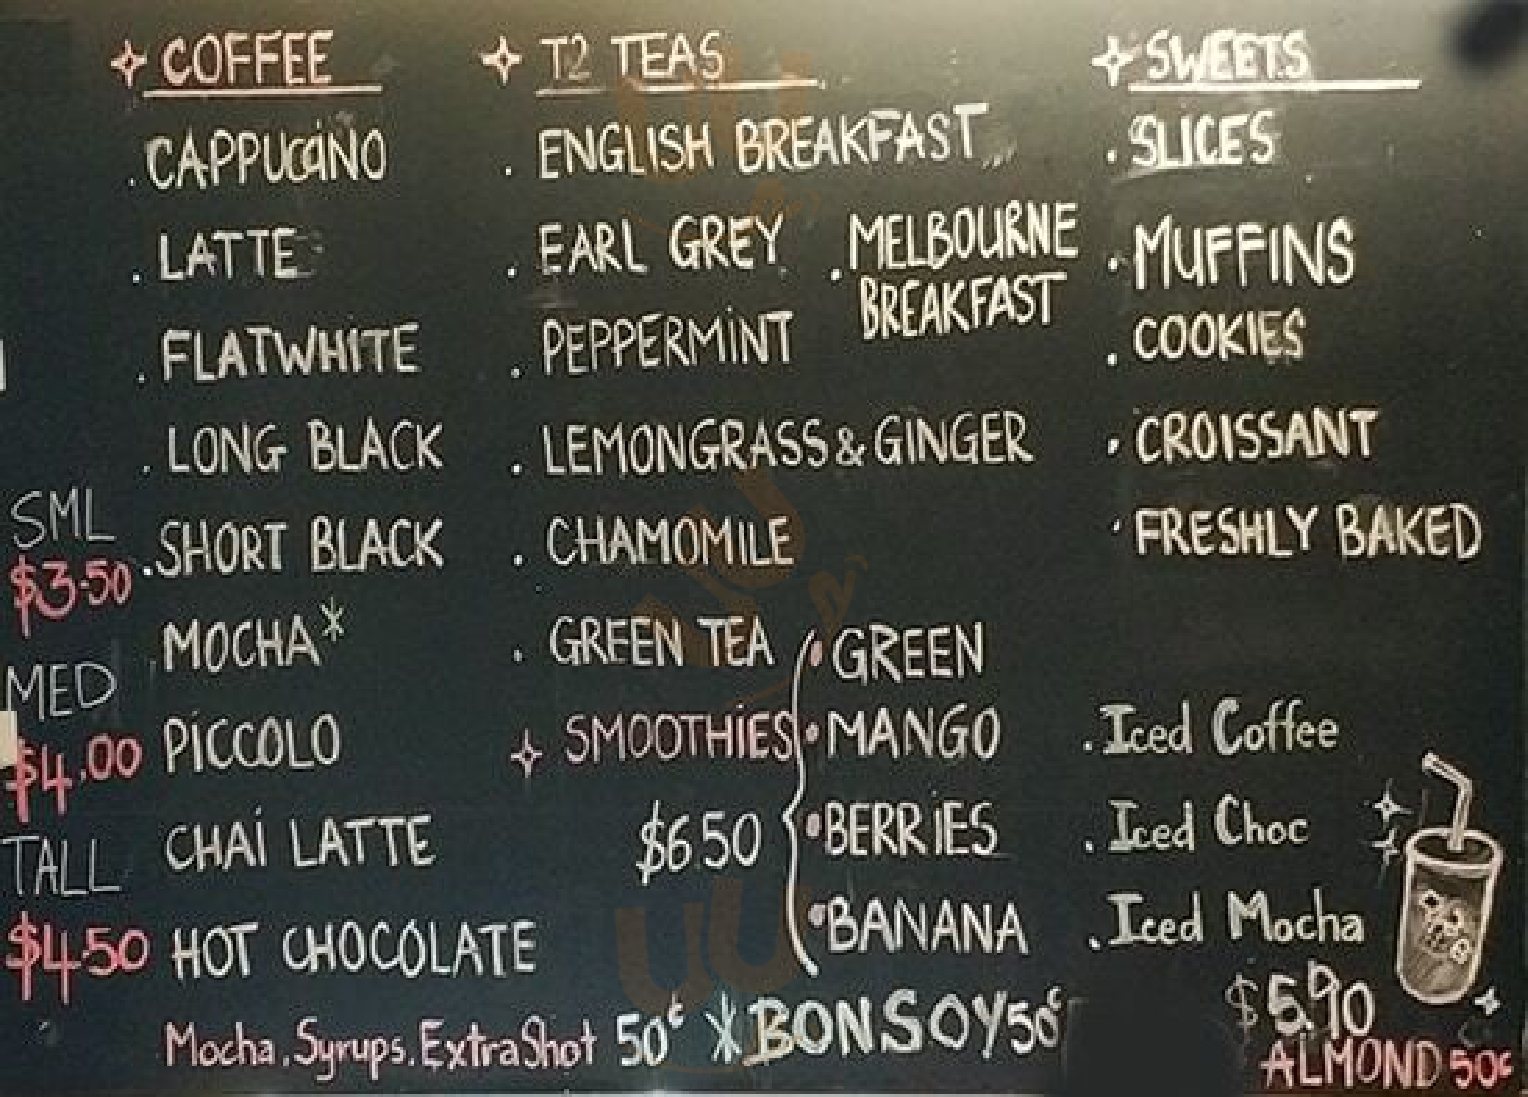 COFFEE
CAPPUCiNO
LATTE
FLATWHITE
LONG BLACK
SHORT BLACK
MOCHA*
PiCCOLO
CHAi LATTE
HOT CHOCOLATE
SML
$3.50
MED
$4.00
TALL
$4.50
T2 TEAS
ENGLISH BREAKFAST
EARL GREY
MELBOURNE
BREAKFAST
PEPPERMiNT
LEMONGRASS & GINGER
CHAMOMILE
GREEN TEA
SMOOTHiES
$6.50
GREEN
MANGO
BERRiES
BANANA
SWEETS
SLICES
MUFFINS
COOKIES
CROISSANT
FRESHLY BAKED
Iced Coffee
Iced Choc
Iced Mocha
$5.90
Mocha.Syrups.Extra Shot 50¢ * BONSOY 50¢
ALMOND 50¢